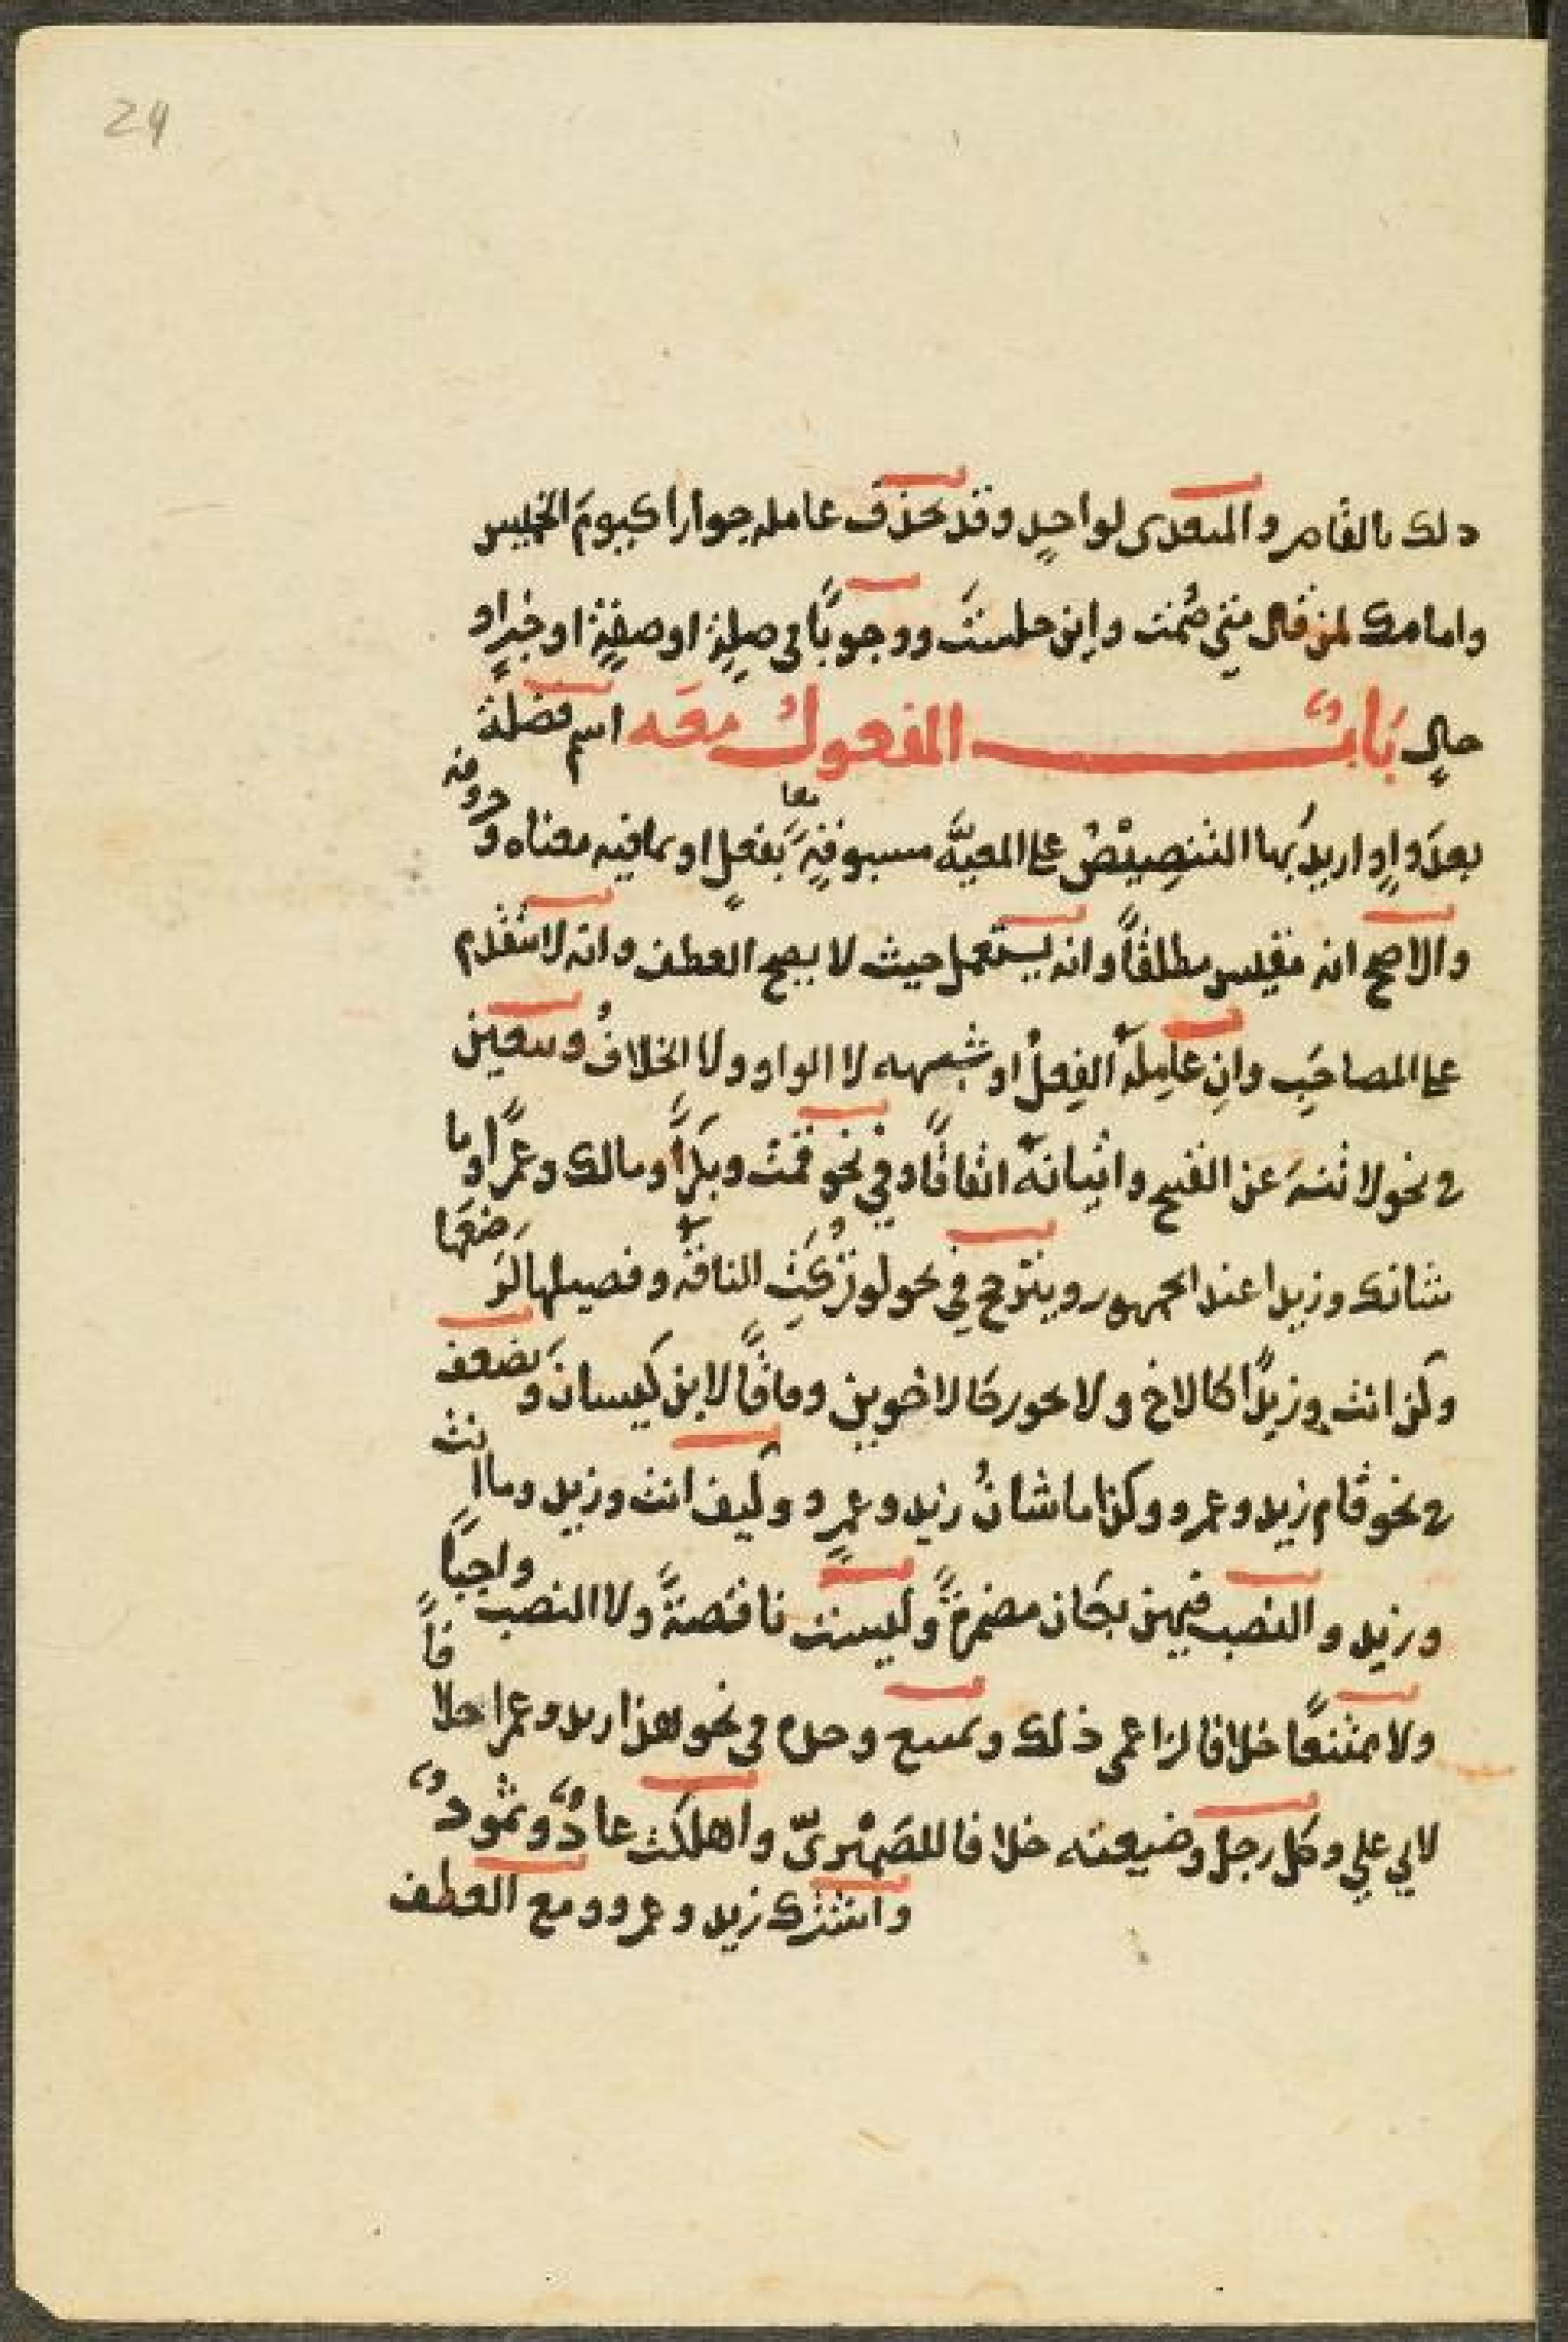 24
ذلك بالقاصر والمتعدى لواحدٍ وقد يحذف عامله جوازا كيومَ الخميس
وامامك لمن قال متى صُمت واين جلستَ ووجوبًا فى صلةٍ اوصفةٍ اوخبرٍ او
حالٍ بَابٌ المفعولُ معَه اسم فضلة
بعدَ واوٍ اريدَ بها التنصيصُ على المعيَّة مسبوقةٍ بفعلٍ او بما فيه معناه و حروفه
والاصح انه مقيس مطلقًا وانه يستعمل حيث لا يصح العطف وانه لا يتقدم
على المصاحَبِ وانِ عامِلَه الفِعلُ اوشبهه لا الواو ولا الخلافُ ويتعين
فى نحو لا تنهَ عن القبيح واتيانَه اتفاقًا وفي نحو قمتُ وبكرًا ومالك وعمرًا وما
شانك وزيدا عند الجمهور ويترجح في نحو لو تُرِكَتِ الناقةُ وفصيلها لَرَضعَها
وكن انت وزيدًا كالاخ ولا يجوز كالاخوين وفاقًا لابن كيسان ويَضعف
فى نحو قام زيد وعمرو وكذا ما شانُ زيد وعمرٍو وكيف انت وزيد وما انت
وزيد والنصب فيهن بكَان مضمرةً وليست ناقصةً ولا النصب واجبًا
ولا ممتنعًا خلافا لزاعمى ذلك ويمتنع وحده فى نحو هذا زيد وعمرا خلافًا
لابي علي وكل رجل وضيعته خلافا للصَيْمَرِىّ واهلكتْ عادٌ وثمودٌ
واشترك زيد وعمرو ومع العطف